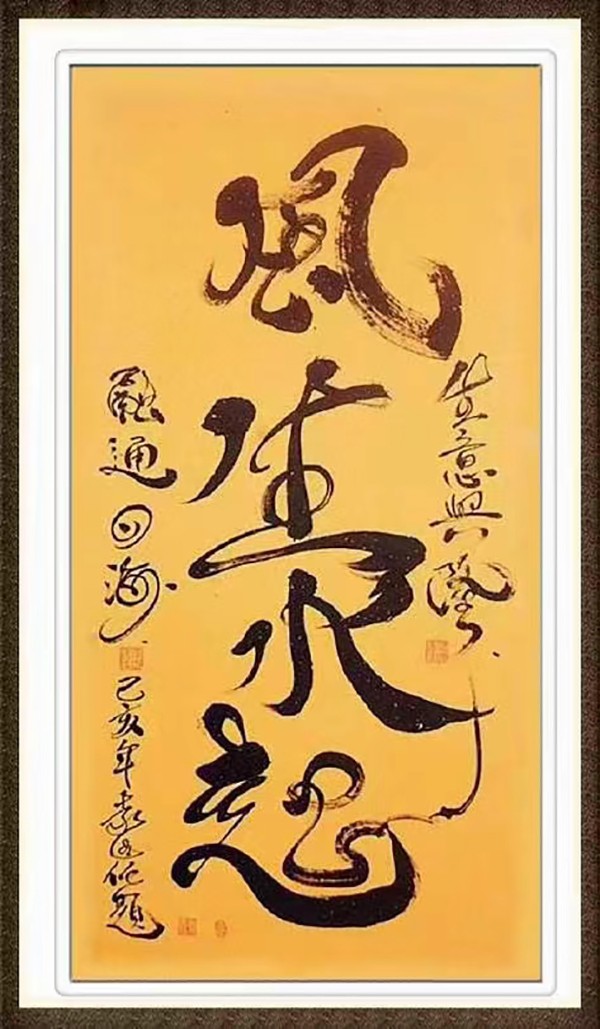 生意興隆
風生水起
融通四海
己亥年袁題